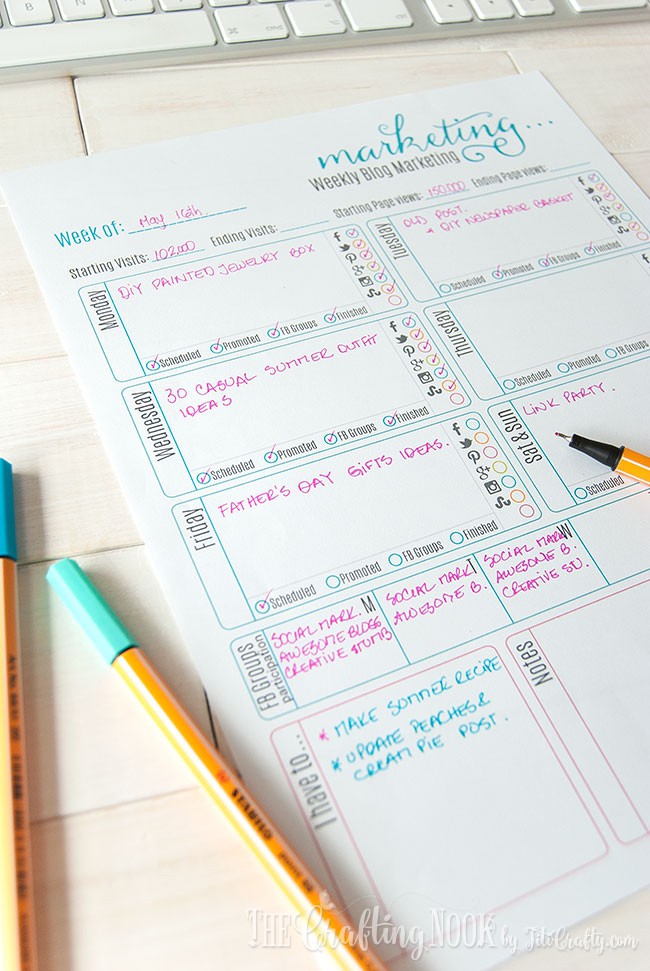 marketing...
Weekly Blog Marketing
Week of: May 16th
Starting Visits: 102.000 Ending Visits:
Starting Page views: 150.000 Ending Page views:
Monday
DIY PAINTED JEWELRY BOX
Scheduled Promoted FB Groups Finished
Tuesday
OLD POST.
+ DIY NEWSPAPER BASKET
Scheduled Promoted FB Groups Finished
Wednesday
30 CASUAL SUMMER OUTFIT
IDEAS
Scheduled Promoted FB Groups Finished
Thursday
Scheduled Promoted FB Groups
Friday
FATHER'S DAY GIFTS IDEAS.
Scheduled Promoted FB Groups Finished
Sat & Sun
LINK PARTY.
Scheduled
FB Groups
participation
M
SOCIAL MARK.
AWESOME BLOGG
CREATIVE STUMB
T
SOCIAL MARK.
AWESOME B.
W
SOCIAL MARK.
AWESOME B.
CREATIVE STU.
I have to...
* MAKE SUMMER RECIPE
* UPDATE PEACHES &
CREAM PIE POST.
Notes
STABILO
THE Crafting NOOK by TitiCrafty.com